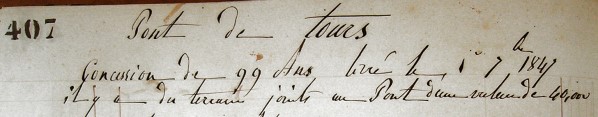 407 Pont de tours
Concession de 99 Ans, livré le 1er 7bre 1847
il y a du terrain joints au Pont d'une valeur de 40,000